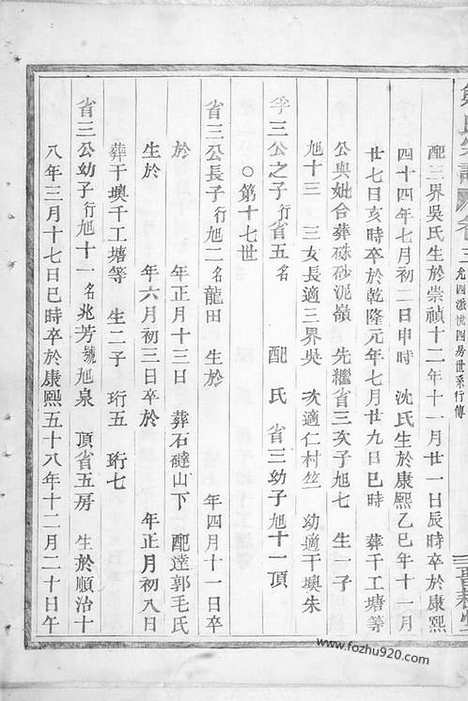 氏宗譜 卷三
配三界吳氏生於崇禎十二年十一月廿一日辰時卒於康熙
四十四年七月初二日申時 沈氏生於康熙乙巳年十一月
廿七日亥時卒於乾隆元年七月廿九日巳時 葬干工塘等
公與妣合葬硃砂泥嶺 先繼省三次子旭七 生一子
旭十三 三女長適三界吳 次適仁村竺 幼適干墺朱
孚三公之子行省五名 配 氏 省三幼子旭十一頂
○第十七世
省三公長子行旭二名龍田 生於 年四月十一日卒
於 年正月十三日 葬石礳山下 配達郭毛氏
生於 年六月初三日卒於 年正月初八日
葬干墺千工塘等 生二子 珩五 珩七
省三公幼子行旭十一名兆芳號旭泉 頂省五房 生於順治十
八年三月十七日巳時卒於康熙五十八年十二月二十日午
www.fozhu920.com